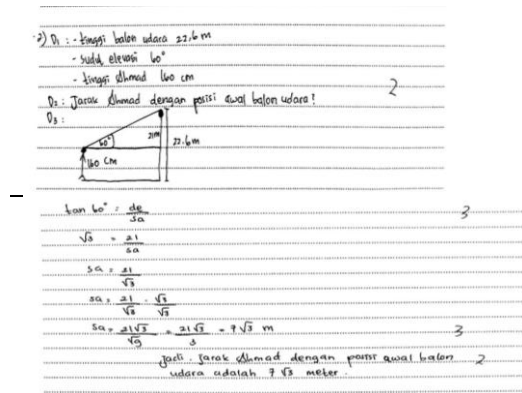 2) D1 : - tinggi balon udara 22,6 m
- sudut elevasi 60°
- tinggi Ahmad 160 cm
2
D2 : Jarak Ahmad dengan posisi awal balon udara!
D3 :
60°
21m
22.6m
160 cm
tan 60° = de/sa
3
√3 = 21/sa
sa = 21/√3
sa = 21/√3 . √3/√3
sa = 21√3/√9 = 21√3/3 = 7√3 m
3
Jadi. Jarak Ahmad dengan posisi awal balon
2
udara adalah 7√3 meter.